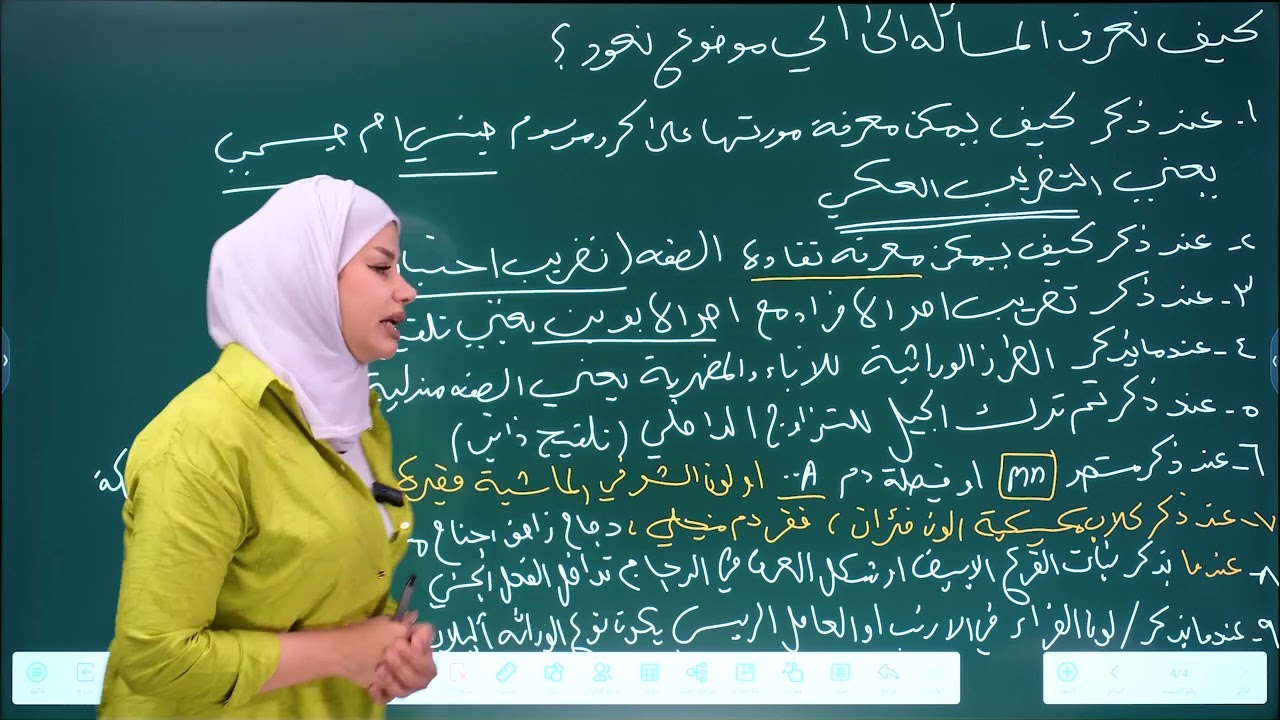 كيف نعرف المسألة الى الي موضوع تعود ؟
١. عند ذكر كيف يمكن معرفة مورثتها على كروموسوم جنسي ام جسمي
يعني التضريب العكسي
٢. عند ذكر كيف يمكن معرفة نقاوة الصفه (تضريب اختبا
٣. عند ذكر تضريب احد الافراد مع احد الابوين يعني تلقي
٤. عندما يذكر الطرز الوراثية للاباء والمظهرية يعني الصفه مندلية
٥. عند ذكر تم ترك الجيل للتزاوج الداخلي (تلقيح ذاتي)
٦. عند ذكر مستضد MN او فيصلة دم A او لون الشعر في الماشية فقيرة
٧. عند ذكر كلاب مكسيكية الون فئران ، فقر دم منجلي ، دجاج زاحف اجناح
٨. عندما يذكر نبات القرع الابيض او شكل العرف في الدجاج تداخل الفعل الجيني
٩. عندما يذكر / لون الفراء في الارنب او العامل الريسي يكون نوع الوراثه
4/4